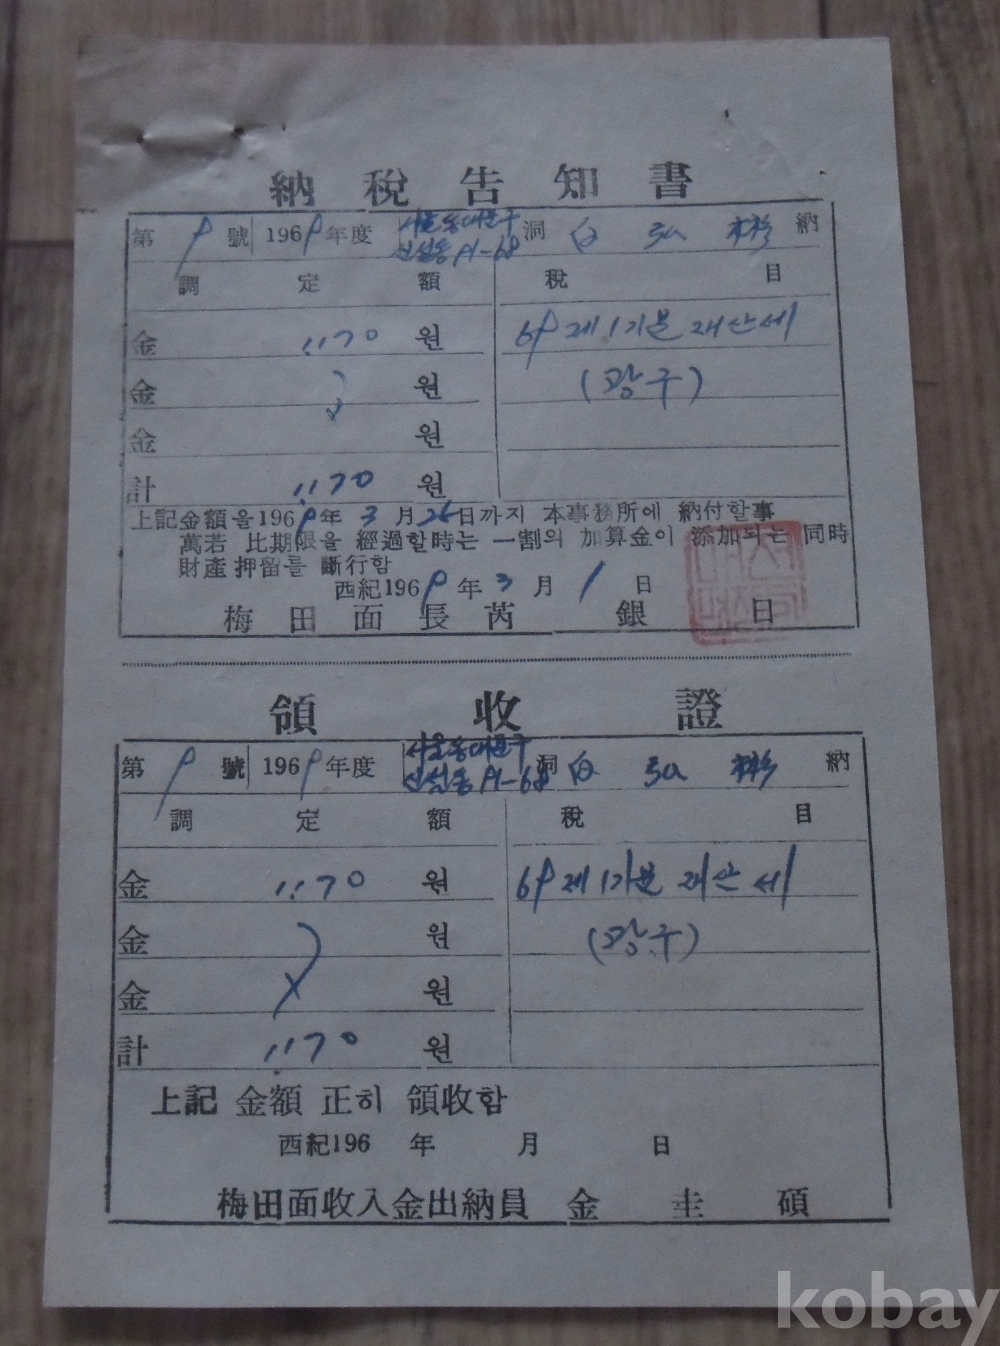 納稅告知書
第 9 號 1969年度 서울동대문구 신설동 91-68 洞 白 弘 彬 納
調定額 稅目
金 1170 원 69 제1기분 재산세
金 원 (광구)
金 원
計 1170 원
上記金額을1969年 3月 26日까지 本事務所에 納付할事
萬若 比期限을 經過할時는 一割의 加算金이 添加되는 同時
財產押留를 斷行함
西紀1969年 3月 1日
梅田面長芮 銀 日
領收證
第 9 號 1969年度 서울동대문구 신설동 91-68 洞 白 弘 彬 納
調定額 稅目
金 1170 원 69 제1기분 재산세
金 원 (광구)
金 원
計 1170 원
上記 金額 正히 領收함
西紀196 年 月 日
梅田面收入金出納員 金 圭 碩
kobay